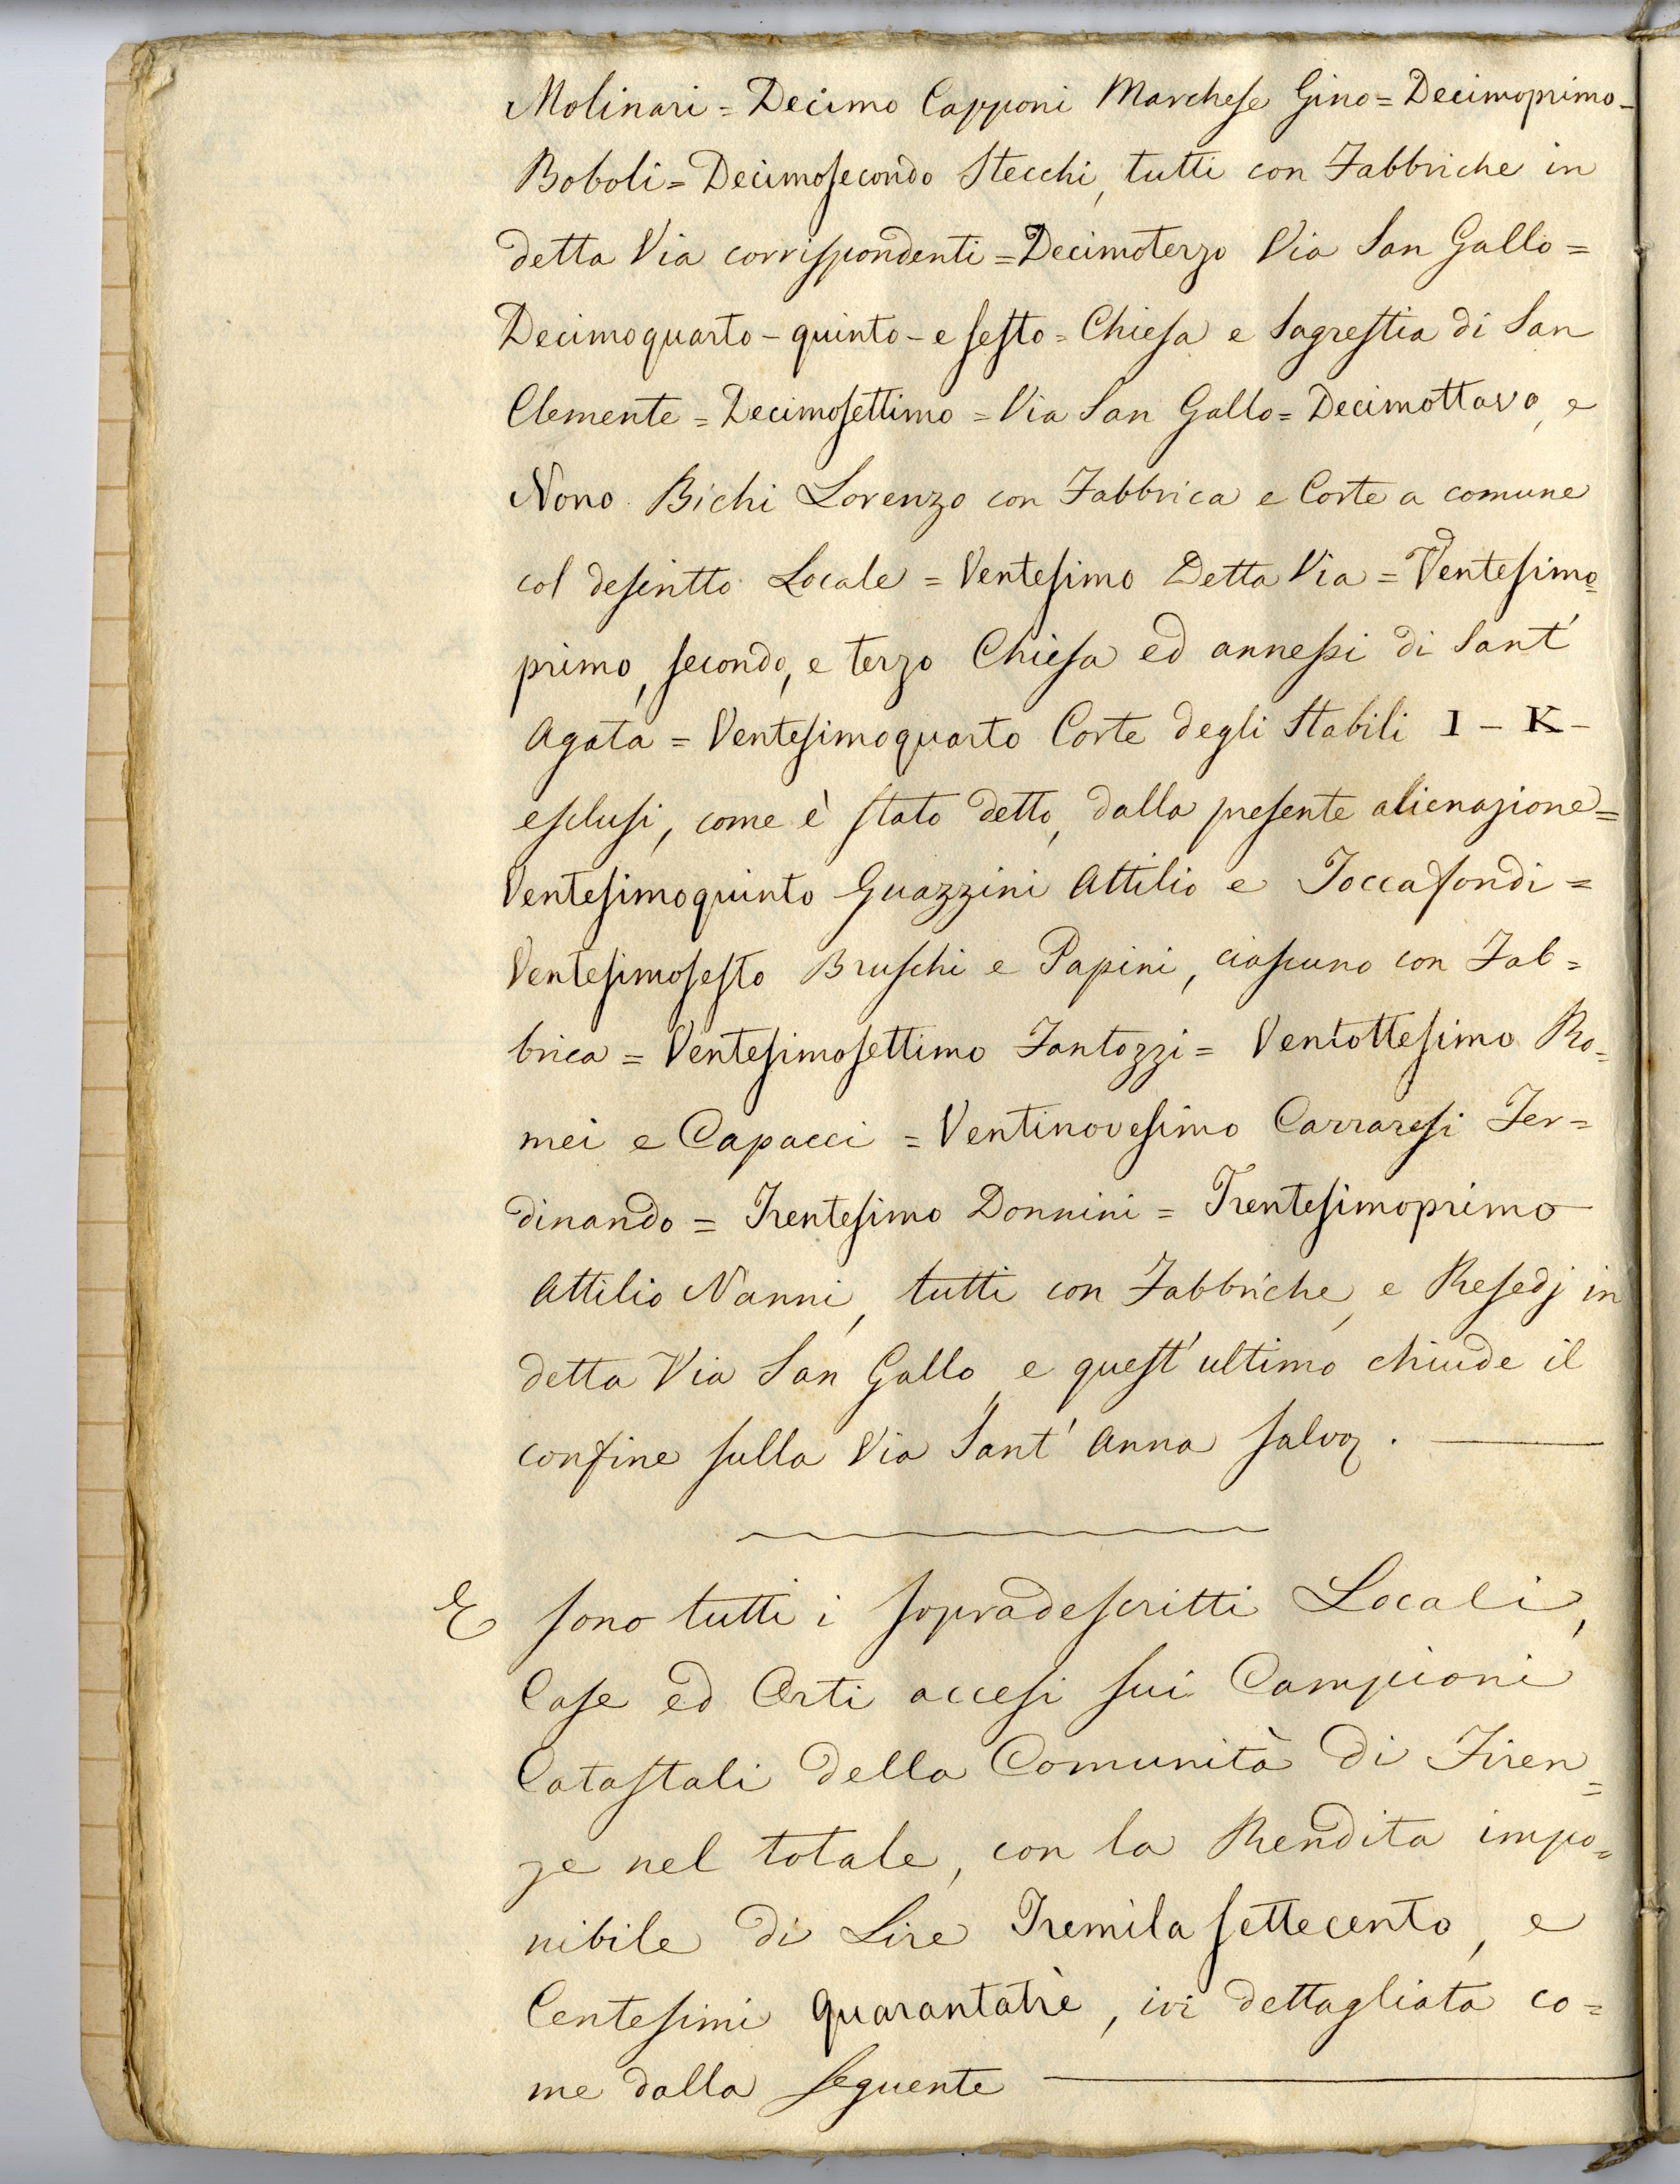 Molinari = Decimo Capponi Marchese Gino = Decimoprimo -
Boboli = Decimosecondo Stecchi, tutti con Fabbriche in
detta Via corrispondenti = Decimoterzo Via San Gallo =
Decimoquarto - quinto - e sesto = Chiesa e Sagrestia di San
Clemente = Decimosettimo = Via San Gallo = Decimottavo, e
Nono Bichi Lorenzo con Fabbrica e Corte a comune
col descritto Locale = Ventesimo Detta Via = Ventesimo =
primo, secondo, e terzo Chiesa ed annessi di Sant'
Agata = Ventesimoquarto Corte degli Stabili I - K -
esclusi, come è stato detto, dalla presente alienazione =
Ventesimoquinto Guazzini Attilio e Toccafondi =
Ventesimosesto Bruschi e Papini, ciascuno con Fab =
brica = Ventesimosettimo Fantozzi = Ventottesimo Ro =
mei e Capacci = Ventinovesimo Carraresi Fer =
dinando = Trentesimo Donnini = Trentesimoprimo
Attilio Nanni, tutti con Fabbriche, e Resedj in
detta Via San Gallo, e quest'ultimo chiude il
confine sulla Via Sant' Anna salvo.
E sono tutti i sopradescritti Locali,
Case ed Orti accesi sui Campioni
Catastali della Comunità di Firen =
ze nel totale, con la Rendita impo =
nibile di Lire Tremila settecento, e
Centesimi quarantatrè, ivi dettagliata co =
me dalla seguente